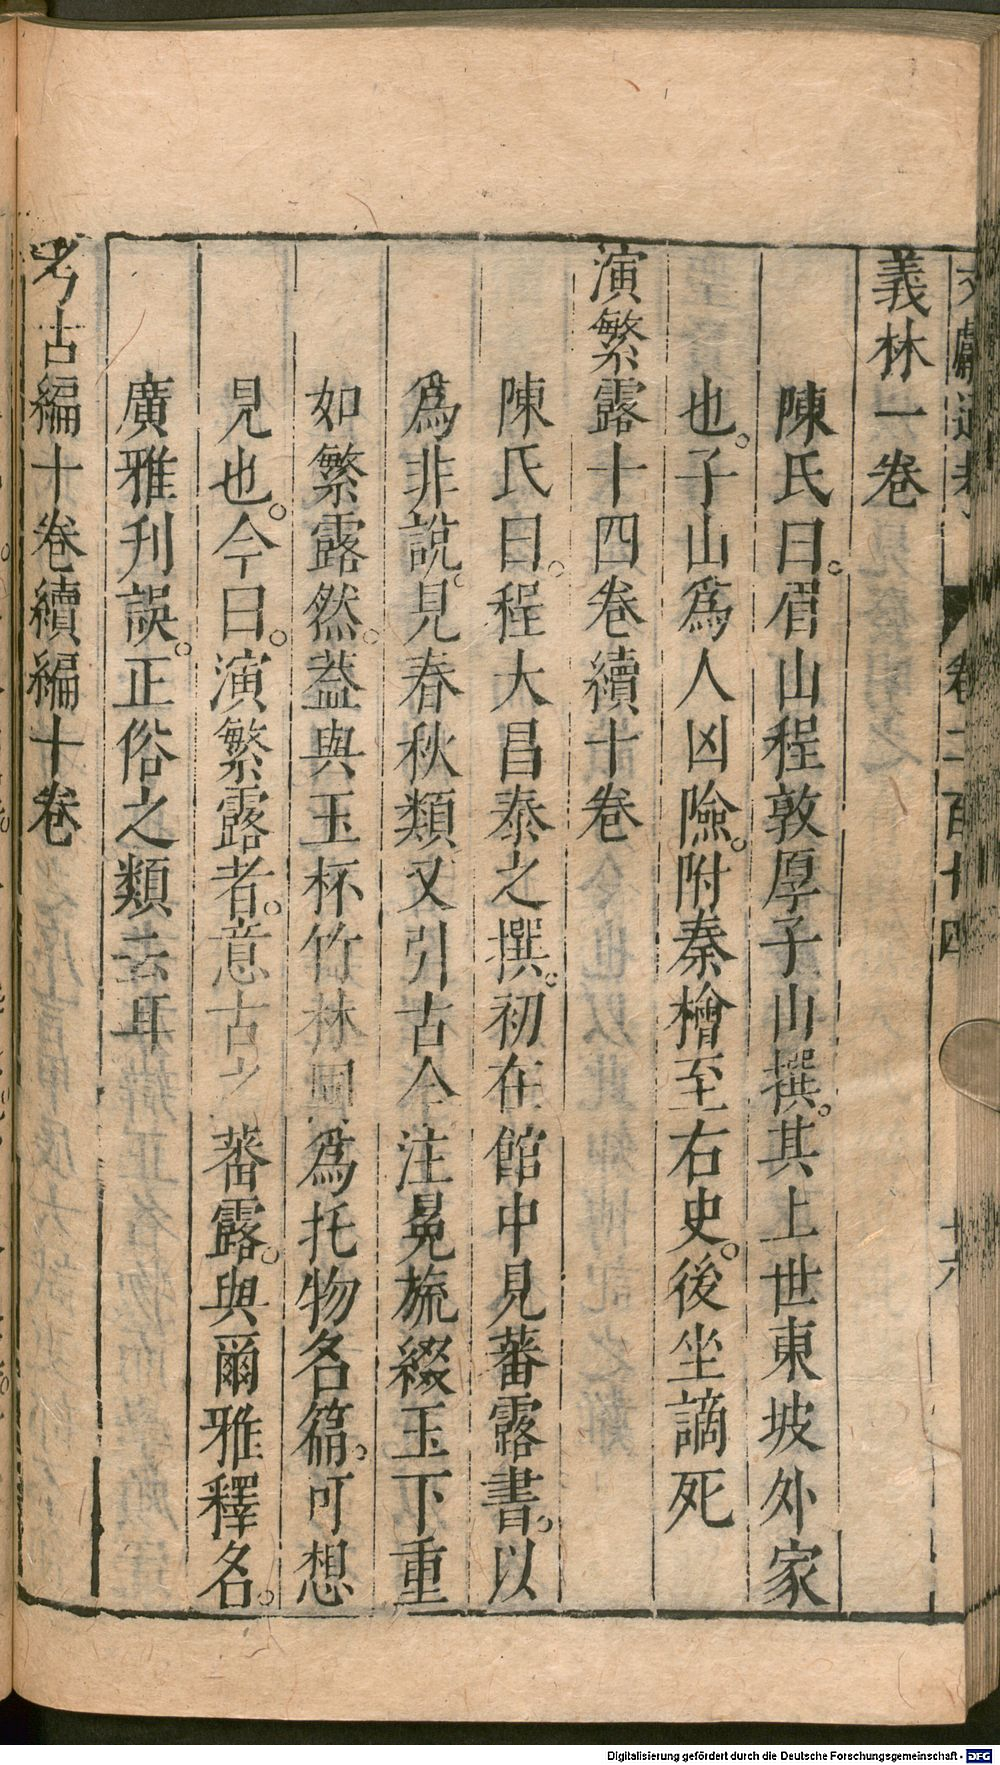 文獻通考 卷二百十四 十六
義林一卷
陳氏曰。眉山程敦厚子山撰。其上世東坡外家
也。子山爲人凶險。附秦檜至右史。後坐謫死
演繁露十四卷續十卷
陳氏曰。程大昌泰之撰。初在館中見蕃露書。以
爲非說。見春秋類又引古今注冕旒綴玉下重
如繁露然。葢與玉杯竹林同爲托物名篇。可想
見也。今曰。演繁露者。意古之蕃露。與爾雅釋名。
廣雅刋誤。正俗之類云耳
考古編十卷續編十卷
Digitalisierung gefördert durch die Deutsche Forschungsgemeinschaft - DFG